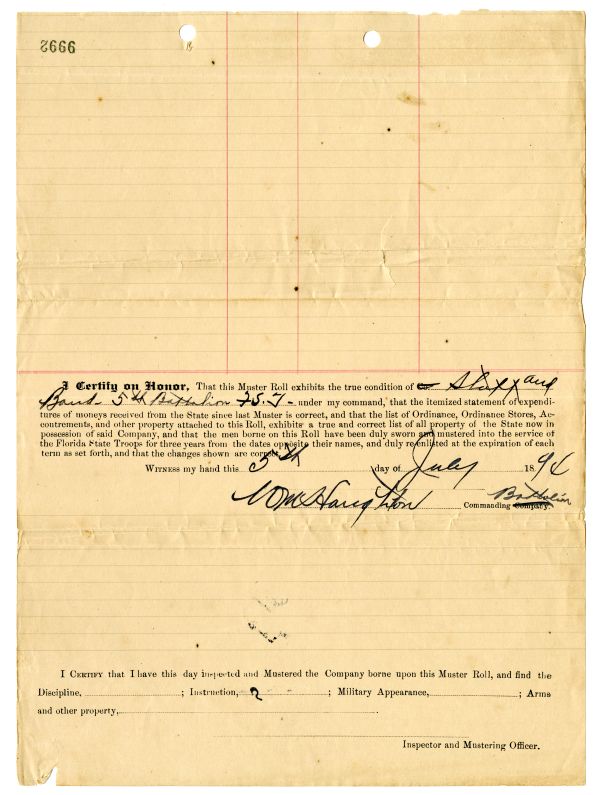 2666
I Certify on Honor, That this Muster Roll exhibits the true condition of Co. Staff and
Band 5th Battalion F.S.T. under my command, that the itemized statement of expendi-
tures of moneys received from the State since last Muster is correct, and that the list of Ordinance, Ordinance Stores, Ac-
coutrements, and other property attached to this Roll, exhibits a true and correct list of all property of the State now in
possession of said Company, and that the men borne on this Roll have been duly sworn and mustered into the service of
the Florida State Troops for three years from the dates opposite their names, and duly re-enlisted at the expiration of each
term as set forth, and that the changes shown are correct.
WITNESS my hand this 5th day of July 1894
Haughton Commanding Company. Battalion
I CERTIFY that I have this day inspected and Mustered the Company borne upon this Muster Roll, and find the
Discipline, ; Instruction, ; Military Appearance, ; Arms
and other property, .
Inspector and Mustering Officer.